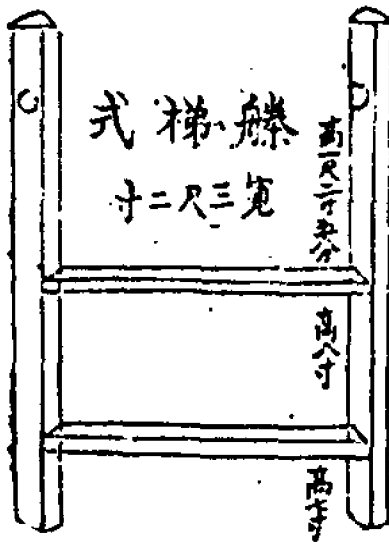 梯式
寬三尺二寸
高一尺二寸五分
高八寸
高七寸